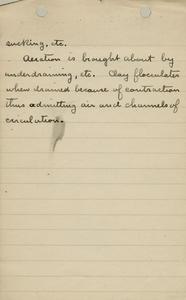 suckling, etc.
Aeration is brought about by
underdraining, etc. Clay flocculates
when drained because of contraction
thus admitting air and channels of
circulation.